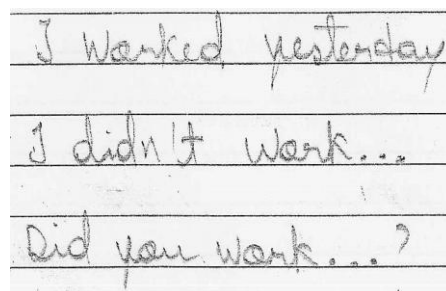 I worked yesterday
I didn't work...
Did you work...?